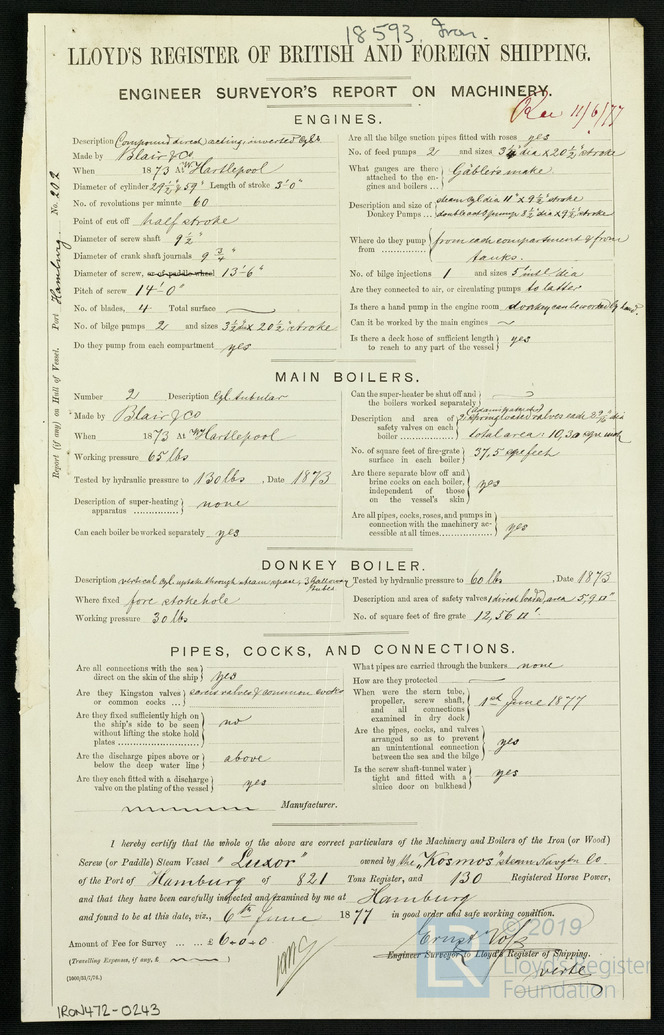 18593 Iron.
LLOYD'S REGISTER OF BRITISH AND FOREIGN SHIPPING.
ENGINEER SURVEYOR'S REPORT ON MACHINERY.
Rec 11/6/77
Report (if any) on Hull of Vessel. Port Hamburg No. 202
ENGINES.
Description Compound direct acting inverted Cyls
Made by Blair & Co
When 1873 At W Hartlepool
Diameter of cylinder 29½" & 59" Length of stroke 3'0"
No. of revolutions per minute 60
Point of cut off half stroke
Diameter of screw shaft 9½"
Diameter of crank shaft journals 9¾"
Diameter of screw, or of paddle wheel 13'-6"
Pitch of screw 14'-0"
No. of blades, 4 Total surface
No. of bilge pumps 2 and sizes 3½ dia x 20½ stroke
Do they pump from each compartment yes
Are all the bilge suction pipes fitted with roses yes
No. of feed pumps 2 and sizes dia x 20½ stroke
What gauges are there
attached to the en-
gines and boilers ... Gäblers make
Description and size of
Donkey Pumps ... steam cyl dia 11" x 9½ stroke
double act pump 8½ dia x 9½ stroke
Where do they pump
from from each compartment & from
tanks.
No. of bilge injections 1 and sizes 5 dia
Are they connected to air, or circulating pumps to latter
Is there a hand pump in the engine room donkey can be worked by hand
Can it be worked by the main engines
Is there a deck hose of sufficient length
to reach to any part of the vessel yes
MAIN BOILERS.
Number 2 Description Cyl. tubular
Made by Blair & Co
When 1873 At W Hartlepool
Working pressure 65 lbs
Tested by hydraulic pressure to 130 lbs, Date 1873
Description of super-heating
apparatus none
Can each boiler be worked separately yes
Can the super-heater be shut off and
the boilers worked separately
Description and area of
safety valves on each
boiler 2 spring loaded valves each dia
total area: 10,30 sqre inch
No. of square feet of fire-grate
surface in each boiler 37,5 sqre feet
Are there separate blow off and
brine cocks on each boiler,
independent of those
on the vessel's skin yes
Are all pipes, cocks, roses, and pumps in
connection with the machinery ac-
cessible at all times yes
DONKEY BOILER.
Description vertical cyl. uptake through steam space, 3 Galloway tubes
Where fixed fore stokehole
Working pressure 30 lbs
Tested by hydraulic pressure to 60 lbs, Date 1873
Description and area of safety valves 1 direct loaded, area 5,9 □"
No. of square feet of fire grate 12,56 □'
PIPES, COCKS, AND CONNECTIONS.
Are all connections with the sea
direct on the skin of the ship yes
Are they Kingston valves
or common cocks ... screw valves & common cocks
Are they fixed sufficiently high on
the ship's side to be seen
without lifting the stoke hold
plates no
Are the discharge pipes above or
below the deep water line above
Are they each fitted with a discharge
valve on the plating of the vessel yes
What pipes are carried through the bunkers none
How are they protected
When were the stern tube,
propeller, screw shaft,
and all connections
examined in dry dock 1st June 1877
Are the pipes, cocks, and valves
arranged so as to prevent
an unintentional connection
between the sea and the bilge yes
Is the screw shaft-tunnel water
tight and fitted with a
sluice door on bulkhead yes
Manufacturer.
I hereby certify that the whole of the above are correct particulars of the Machinery and Boilers of the Iron (or Wood)
Screw (or Paddle) Steam Vessel "Luxor" owned by the "Kosmos" steam Navgtn Co.
of the Port of Hamburg of 821 Tons Register, and 130 Registered Horse Power,
and that they have been carefully inspected and examined by me at Hamburg
and found to be at this date, viz., 6th June 1877 in good order and safe working condition.
Amount of Fee for Survey ... ... £ 6-0-0
(Travelling Expenses, if any, £
Ernst Voss
Engineer Surveyor to Lloyd's Register of Shipping.
(1000/31/7/76.)
IRON472-0243
© 2019
LR
Lloyd's Register
Foundation